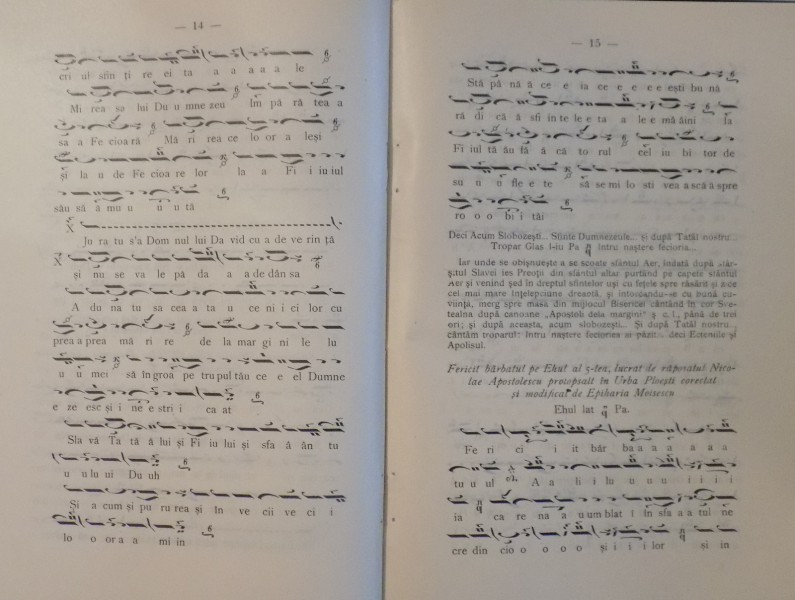 — 14 —
cri ul sfin ți re ei ta a a a a a le
Mi rea sa lui Du u mne zeu Îm pă ră tea a
sa a Fe cioa ră Mă ri rea ce lo or a leși
și la u de Fe cioa re lor la a Fi i iu iul
său să ă mu u u u tă
Ju ra tu s'a Dom nul lui Da vid cu a de ve rin ță
și nu se va le pă da a a de dân sa
A du na tu sa cea a ta u ce ni i ci lor cu
prea a prea mă ri re de la mar gi ni le lu
u u mei să în groà pe tru pul tău ce e el Dumne
e ze esc și i ne e stri i ca at
Sla vă Ta tă ă lui și Fi iu lui și sfa â ân tu
u u lu ui Du uh
Și a cum și pu ru rea și în ve cii ve ci i
lo o or a a mi in
— 15 —
Stă pâ nă ă ce e ia ce e e e e ești bu nă
ră di că ă sfi in te le e ta a le e mâ âini la
Fi iul tă ău fă ă că to rul cel in bi tor de
su u u fle e te să se mi lo sti vea ască ă spre
ro o o bi i tăi
Deci Acum Slobozești... Sfinte Dumnezeule... și după Tatăl nostru...
Tropar Glas I-iu Pa întru naștere fecioria...
Iar unde se obișnuește a se scoate sfântul Aer, îndată după sfâr-
șitul Slavei ies Preoții din sfântul altar purtând pe capete sfântul
Aer și venind șed în dreptul sfintelor uși cu fețele spre răsărit și zice
cel mai mare înțelepciune dreaptă, și întorcându-se cu bună cu-
viință, merg spre masa din mijlocul Bisericei cântând în cor Sve-
tealna după canoane „Apostoli dela margini" ș c. l., până de trei
ori; și după aceasta, acum slobozești... Și după Tatăl nostru...
cântăm troparul: Întru naștere fecioria ai păzit... deci Ecteniile și
Apolisul.
Fericit bărbatul pe Ehul al 5-lea, lucrat de răposatul Nico-
lae Apostolescu protopsalt în Urba Ploești corectat
și modificat de Epiharia Moisescu
Ehul lat Pa.
Fe ri ci i it băr ba a a a a a a
tu u ul A a li i lu u u u i i i i
ia ca re na a u um blat î în sfa a a tul ne
cre din cio o o o o și i i i lor și in